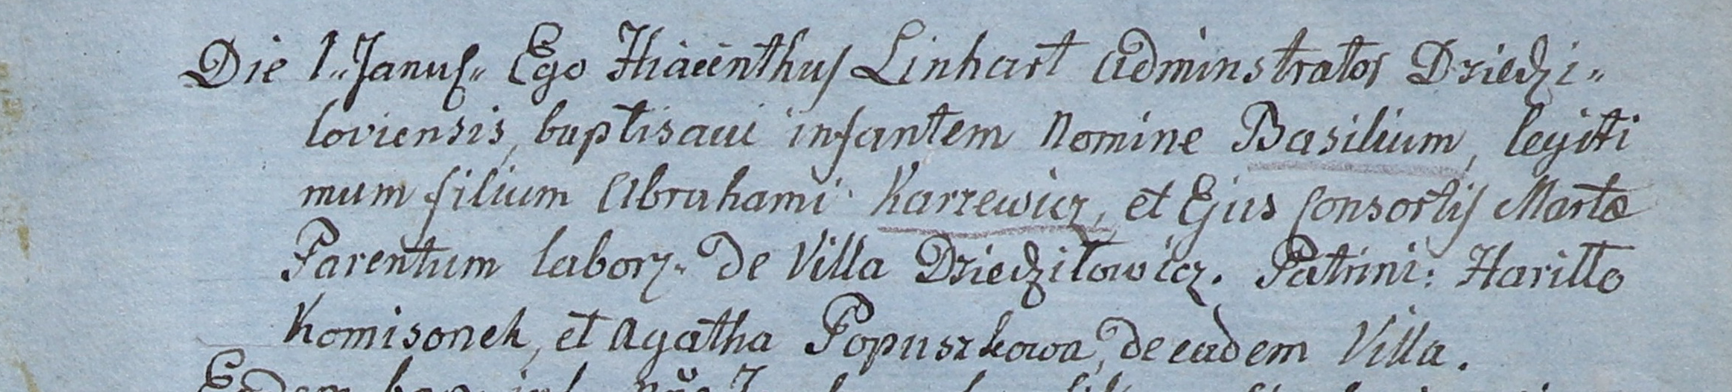 Die 1„ Janus„ Ego Hiacenthus Linhart Adminstrator Dziedzi„
loviensis, baptisavi infantem Nomine Basilium, legiti
mum filium Abrahami Karzewicz, et Ejus Consortis Marta
Parentum laborz. De Villa Dziedziłowicz. Patrini: Haritto
Komisonek, et Agatha Popuszkowa, De eadem Villa.